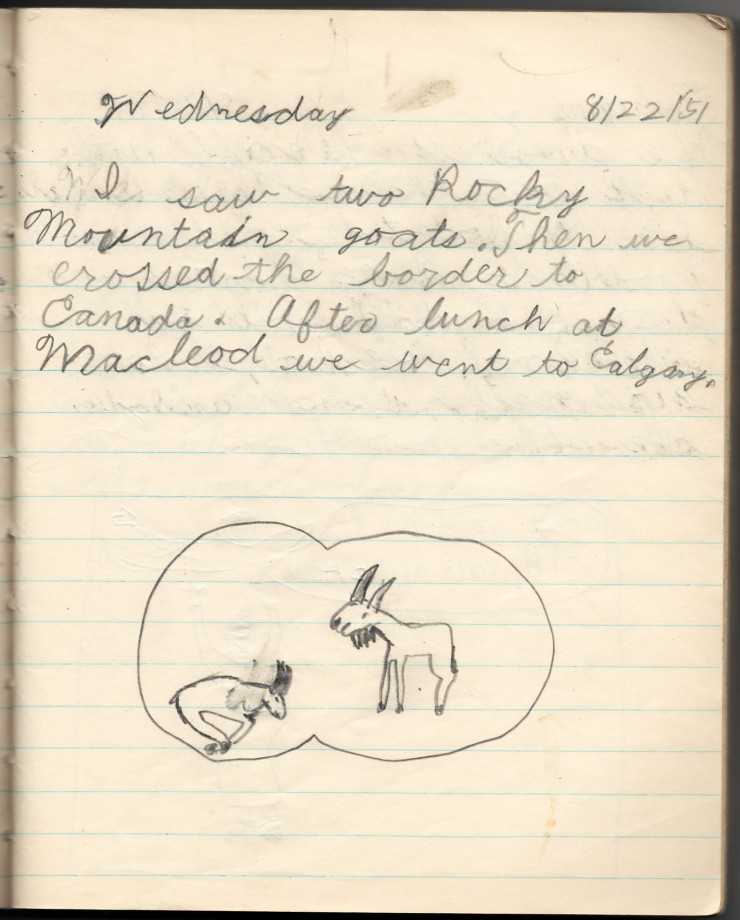 Wednesday 8/22/51
I saw two Rocky
Mountain goats. Then we
crossed the border to
Canada. After lunch at
Macleod we went to Calgary.